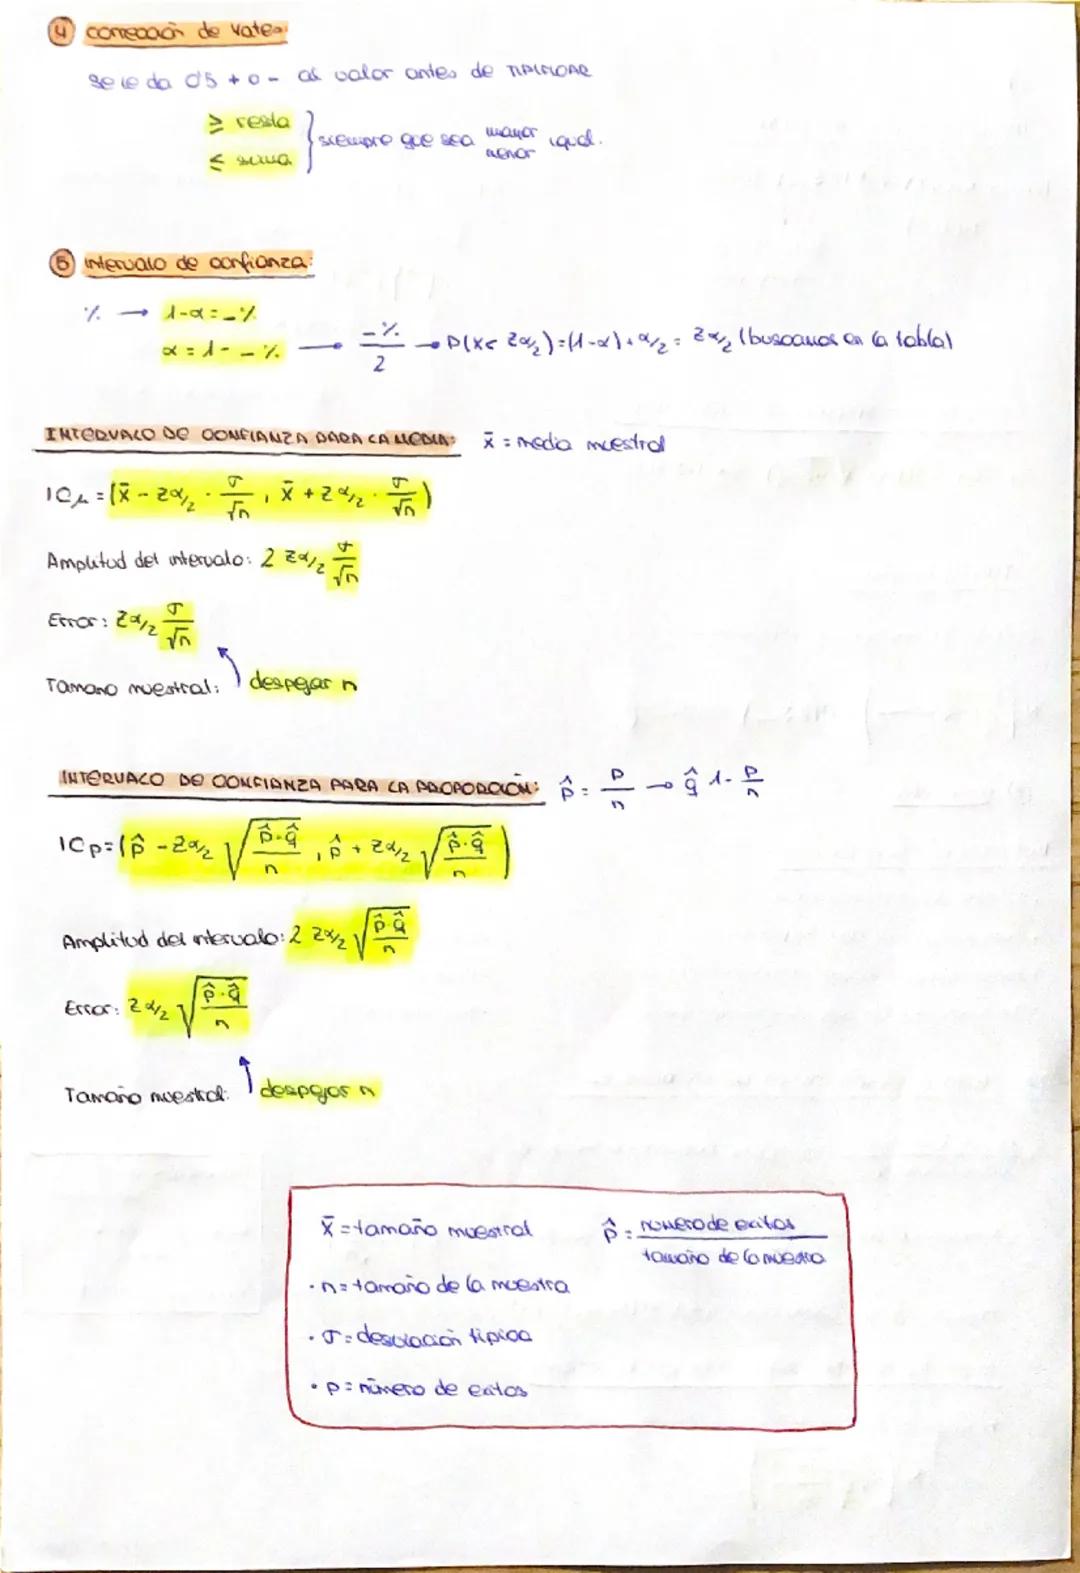 ④ corrección de Yates:
Se le da 0'5 + o - al valor antes de TIPIFICAR
≥ resta
≤ suma
siempre que sea mayor menor igual.
⑤ intervalo de confianza:
% → 1-α = _ %
α = 1 - _ % → _ % / 2 → P(X< Zα/2) = (1-α) + α/2 = Zα/2 (buscamos en la tabla)
INTERVALO DE CONFIANZA PARA LA MEDIA: x̄ = media muestral
ICμ = (x̄ - Zα/2 · σ/√n , x̄ + Zα/2 · σ/√n)
Amplitud del intervalo: 2 Zα/2 σ/√n
Error: Zα/2 σ/√n
Tamaño muestral: despejar n
INTERVALO DE CONFIANZA PARA LA PROPORCIÓN: p̂ = p/n → q̂ 1- p/n
ICp = (p̂ - Zα/2 √(p̂·q̂/n) , p̂ + Zα/2 √(p̂·q̂/n))
Amplitud del intervalo: 2 Zα/2 √(p̂·q̂/n)
Error: Zα/2 √(p̂·q̂/n)
Tamaño muestral: despejar n
x̄ = tamaño muestral
p̂ = número de exitos / tamaño de la muestra
· n = tamaño de la muestra
· σ = desviación típica
· p = número de exitos